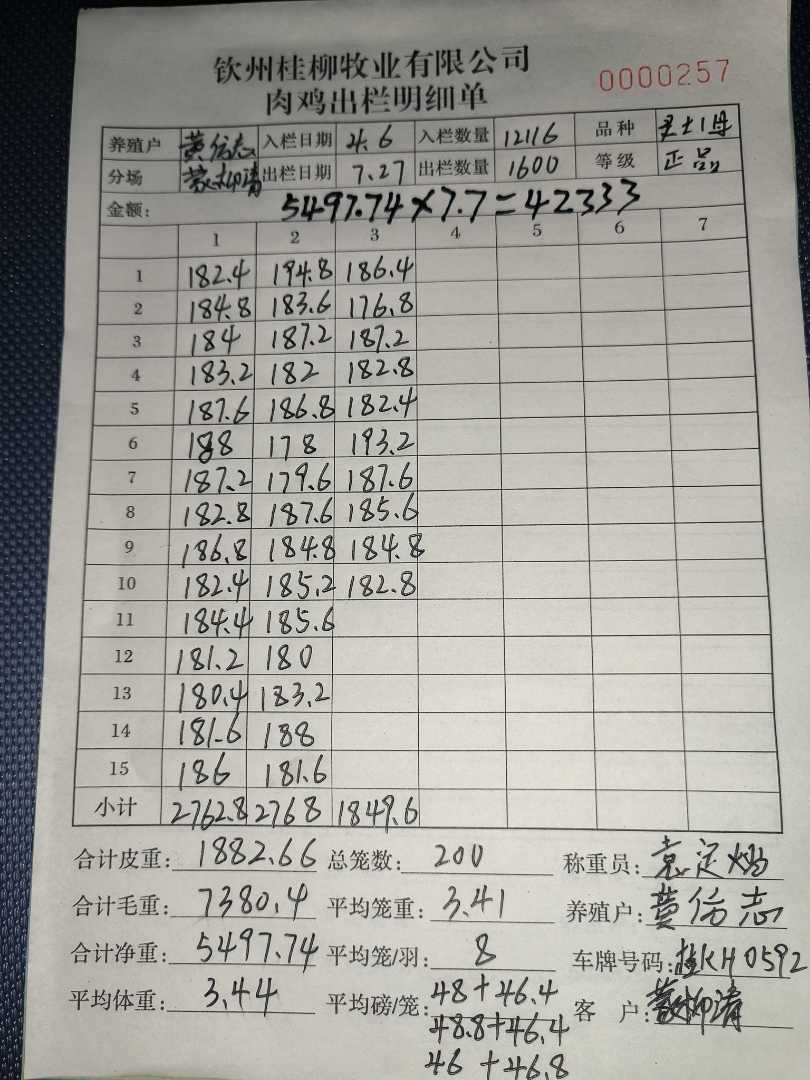 钦州桂柳牧业有限公司
0000257
肉鸡出栏明细单
养殖户 黄伤志 入栏日期 4.6 入栏数量 12116 品种 土1号
分场 蒙柳清 出栏日期 7.27 出栏数量 1600 等级 正品
金额: 5497.74×7.7=42333
1 2 3 4 5 6 7
1 182.4 194.8 186.4
2 184.8 183.6 176.8
3 184 187.2 187.2
4 183.2 182 182.8
5 187.6 186.8 182.4
6 188 178 193.2
7 187.2 179.6 187.6
8 182.8 187.6 185.6
9 186.8 184.8 184.8
10 182.4 185.2 182.8
11 184.4 185.6
12 181.2 180
13 180.4 183.2
14 181.6 188
15 186 181.6
小计 2762.8 2768 1849.6
合计皮重: 1882.66 总笼数: 200 称重员: 袁定
合计毛重: 7380.4 平均笼重: 3.41 养殖户: 黄伤志
合计净重: 5497.74 平均笼/羽: 8 车牌号码: 桂KH0592
平均体重: 3.44 平均磅/笼: 48+46.4 客 户: 蒙柳清
48.8+46.4
46 +46.8